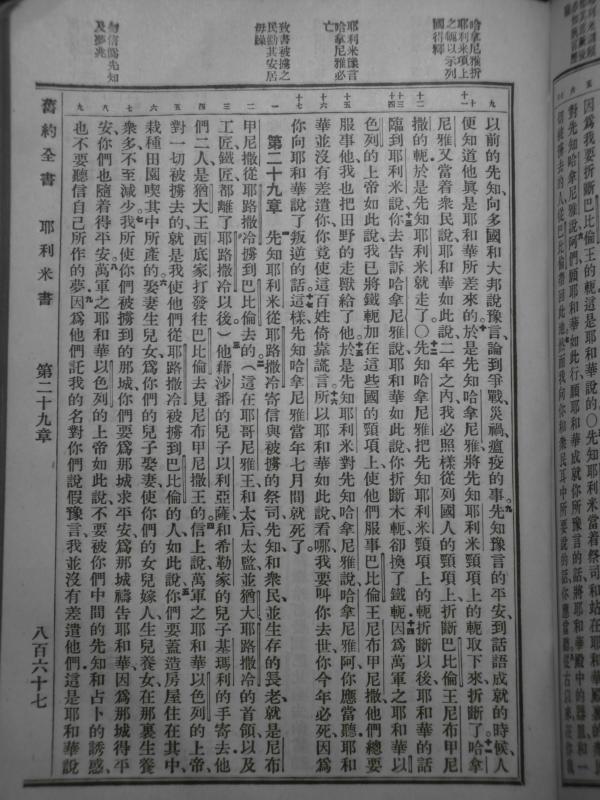 我要折斷巴比倫王的軛這是耶和華說的〇先知耶利米當着祭司和站在耶和華殿裏的衆民
對先知哈拿尼雅說阿們願耶和華如此行願耶和華成就你所豫言的話將耶和華殿中的器皿和一
切被擄去的人從巴比倫帶回此地然而我向你和衆民耳中所要說的話你應當聽從古以來在你
哈拿尼雅折
耶利米項上
之軛以示列
國得釋
耶利米讖言
哈拿尼雅必
亡
致書被擄之
民勸其安居
毋躁
勿信僞先知
及夢兆
以前的先知、向多國和大邦說豫言、論到爭戰、災禍、瘟疫的事先知豫言的平安到話語成就的時候、人
便知道他眞是耶和華所差來的於是先知哈拿尼雅將先知耶利米頸項上的軛取下來折斷了哈拿
尼雅又當着衆民說耶和華如此說二年之內我必照樣從列國人的頸項上折斷巴比倫王尼布甲尼
撒的軛於是先知耶利米就走了〇先知哈拿尼雅把先知耶利米頸項上的軛折斷以後耶和華的話
臨到耶利米說你去告訴哈拿尼雅說耶和華如此說你折斷木軛卻換了鐵軛因爲萬軍之耶和華以
色列的上帝如此說我已將鐵軛加在這些國的頸項上、使他們服事巴比倫王尼布甲尼撒、他們總要
服事他我也把田野的走獸給了他於是先知耶利米對先知哈拿尼雅說哈拿尼雅阿你應當聽耶和
華並沒有差遣你、你竟使這百姓倚靠謊言所以耶和華如此說看哪我要叫你去世你今年必死因爲
你向耶和華說了叛逆的話這樣先知哈拿尼雅當年七月間就死了
第二十九章 先知耶利米從耶路撒冷寄信與被擄的祭司先知和衆民並生存的長老就是尼布
甲尼撒從耶路撒冷擄到巴比倫去的（這在耶哥尼雅王和太后太監並猶大耶路撒冷的首領以及
工匠鐵匠都離了耶路撒冷以後）他藉沙番的兒子以利亞薩和希勒家的兒子基瑪利的手寄去他
們二人是猶大王西底家打發往巴比倫去見尼布甲尼撒王的信上說萬軍之耶和華以色列的上帝、
對一切被擄去的就是我使他們從耶路撒冷被擄到巴比倫的人如此說你們要蓋造房屋住在其中、
栽種田園喫其中所產的娶妻生兒女爲你們的兒子娶妻使你們的女兒嫁人生兒養女在那裏生養
衆多不至減少我所使你們被擄到的那城你們要爲那城求平安爲那城禱告耶和華因爲那城得平
安你們也隨着得平安萬軍之耶和華以色列的上帝如此說不要被你們中間的先知和占卜的誘惑
也不要聽信自己所作的夢因爲他們託我的名對你們說假豫言我並沒有差遣他們這是耶和華說
舊約全書 耶利米書 第二十九章 八百六十七